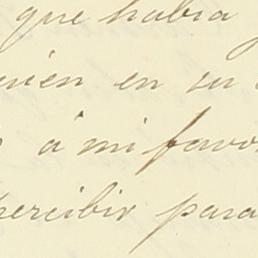 que habia
en su
á mi favor
percibir para